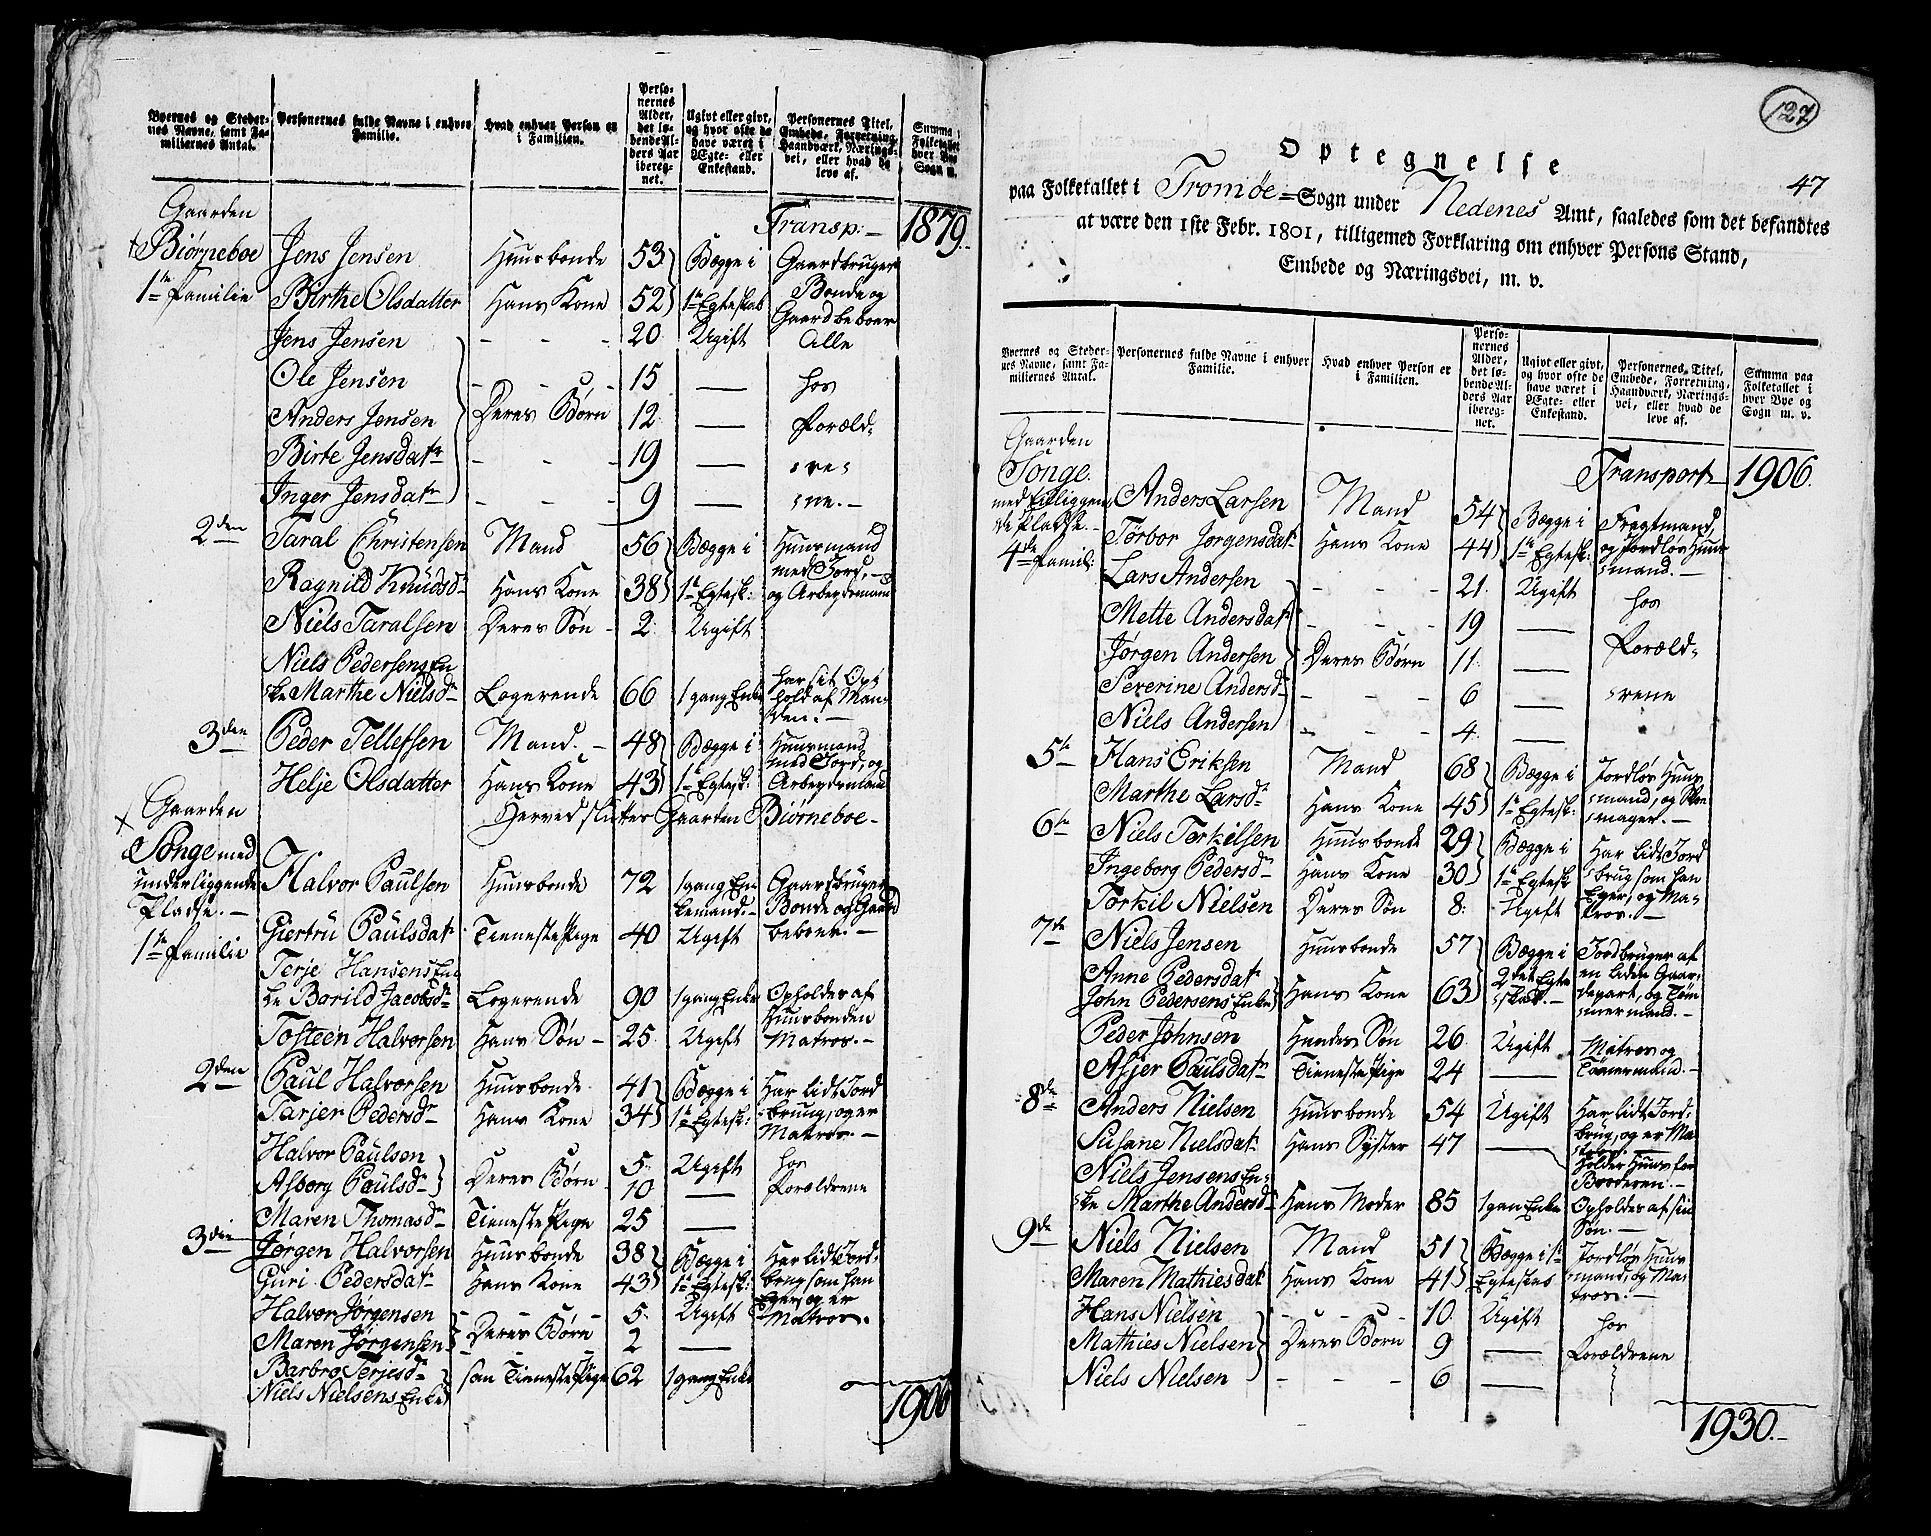 Byernes og Steder-
nes Navne, samt Fa-
miliernes Antal.
Personernes fulde Navne i enhver
Familie.
Hvad enhver Person er
i Familien.
Perso-
nernes
Alder,
det lø-
bende Al-
ders Aar
ibereg-
net.
Ugivt eller givt,
og hvor ofte de
have været i
Ægte- eller
Enkestand.
Personernes Titel,
Embede, Forretning,
Haandværk, Nærings-
vei, eller hvad de
leve af.
Summa i
Folketallet
hver Bye
Sogn m.
Transp:— 1879.
Gaarden
Biørneboe Jens Jensen Huusbonde 53 Begge i Gaardbruger
1te Familie Birthe Olsdatter Hans Kone 52 1te Egteskab Bonde og
Gaardbeboer
Jens Jensen - - - 20 Ugift Alle
Ole Jensen - - - 15 — hos
Anders Jensen Deres Børn 12 — Foræld-
Birte Jensdatr - - - 19 — :re:
Inger Jensdatr - - - 9 — :ne.—
2den Taral Christensen Mand 56 Begge i Huusmand
med Jord,
Ragnild Knudsdr Hans Kone 38 1te Egtesk: og Arbeydsmand
Niels Taralsen Deres Søn 2 Ugift
Niels Pedersens En-
ke Marthe Nielsdr Logerende 66 1 gang Enke har sit Op-
hold af Man-
den.—
3den Peder Tellefsen Mand.— 48 Begge i Huusmand
med Jord, og
Helje Olsdatter Hans Kone 43 1te Egtesk: Arbeydsmand
Herved slutter Gaarden Biørneboe—
Gaarden
Songe med
underliggende
Pladse.—
1te Familie
Halvor Paulsen Huusbonde 72 1 gang En-
kemand.— Gaardbruger
Bonde og Gaard
beboer.—
Giertru Paulsdatr Tieneste Pige 40 Ugift
Terje Hansens En-
ke Borild Jacobsdr Logerende 90 1 gang Enke Opholdes af
Huusbonden
Tosteen Halvorsen Hans Søn - 25 Ugift Matros.—
2den Paul Halvorsen Huusbonde 41 Begge i Har lidt Jord
Tarjer Pedersdr Hans Kone 34 1te Egtesk: brug, og er
Matros.—
Halvor Paulsen Deres Børn 5 Ugift hos
Alborg Paulsdr 10 — Forældrene
Maren Thomasdr Tieneste Pige 25 —
3die Jørgen Halvorsen Huusbonde 38 Begge i Har lidt Jord-
Guri Pedersdatr Hans Kone 43 1te Egtesk: brug som han
Eger, og er
Halvor Jørgensen Deres Børn 5 Ugift Matros.
Maren Jørgensen 2 —
Barbro Terjesdr
Niels Nielsens Enke Tieneste Pige 62 1 gang Enke
1906
127
47
Optegnelse
paa Folketallet i Tromøe Sogn under Nedenes Amt, saaledes som det befandtes
at være den 1ste Febr. 1801, tilligemed Forklaring om enhver Persons Stand,
Embede og Næringsvei, m. v.
Byernes og Steder-
nes Navne, samt Fa-
miliernes Antal.
Personernes fulde Navne i enhver
Familie.
Hvad enhver Person er
i Familien.
Perso-
nernes
Alder,
det lø-
bende Al-
ders Aar
ibereg-
net.
Ugivt eller givt,
og hvor ofte de
have været i
Ægte- eller
Enkestand.
Personernes Titel,
Embede, Forretning,
Haandværk, Nærings-
vei, eller hvad de
leve af.
Summa paa
Folketallet i
hver Bye og
Sogn m. v.
Transport 1906.
Gaarden
Songe
med Enliggen-
de Pladse.—
4de Famil:
Anders Larsen Mand 54 Begge i Fragtmand,
Torbor Jørgensdatr Hans Kone 44 1te Egtesk: og Jordløs Huus
:mand.—
Lars Andersen - - - 21 Ugift hos
Mette Andersdatr - - - 19 — Foræld-
Jørgen Andersen Deres Børn 11 —
Severine Andersdr - - - 6 — :rene
Niels Andersen - - - 4 —
5te Hans Eriksen Mand 68 Begge i Jordløs Huus
Marthe Larsdr Hans Kone 45 1te Egtesk: :mand, og Skoe
:mager.—
6te Niels Terkilsen Huusbonde 29 Begge i Har lidt Jord
Ingeborg Pedersdr Hans Kone 30 1te Egtesk :brug som han
Torkil Nielsen Deres Søn 8 Ugift Eger, og Ma-
tros.—
7de Niels Jensen Huusbonde 57 Begge i Jordbruger af
Anne Pedersdatr
John Pedersens Enke Hans Kone 63 2det Egte
:skab.— en liden Gaar-
depart, og Tøm
:mermand.—
Peder Johnsen Hendes Søn 26 Ugift Matros og
Asjer Paulsdatr Tieneste Pige 24 — Tømermand.—
8de Anders Nielsen Huusbonde 54 Ugift Har lidt Jord:
Susane Nielsdatr Hans Syster 47 — brug, og er Ma-
tros.—
Holder Huus for
Niels Jensens En-
:ke Marthe Andersdr Hans Moder 85 1 gan Enke Broderen.—
Opholdes af sin
Søn.—
9de Niels Nielsen Mand 51 Begge i 1te Jordløs Huus
Maren Mathiesdatr Hans Kone 41 Egteskab :mand, og Ma-
tros.—
Hans Nielsen - - - 10 Ugift hos
Mathies Nielsen Deres Børn 9 — Forældrene
Niels Nielsen - - - 6 —
1930.—